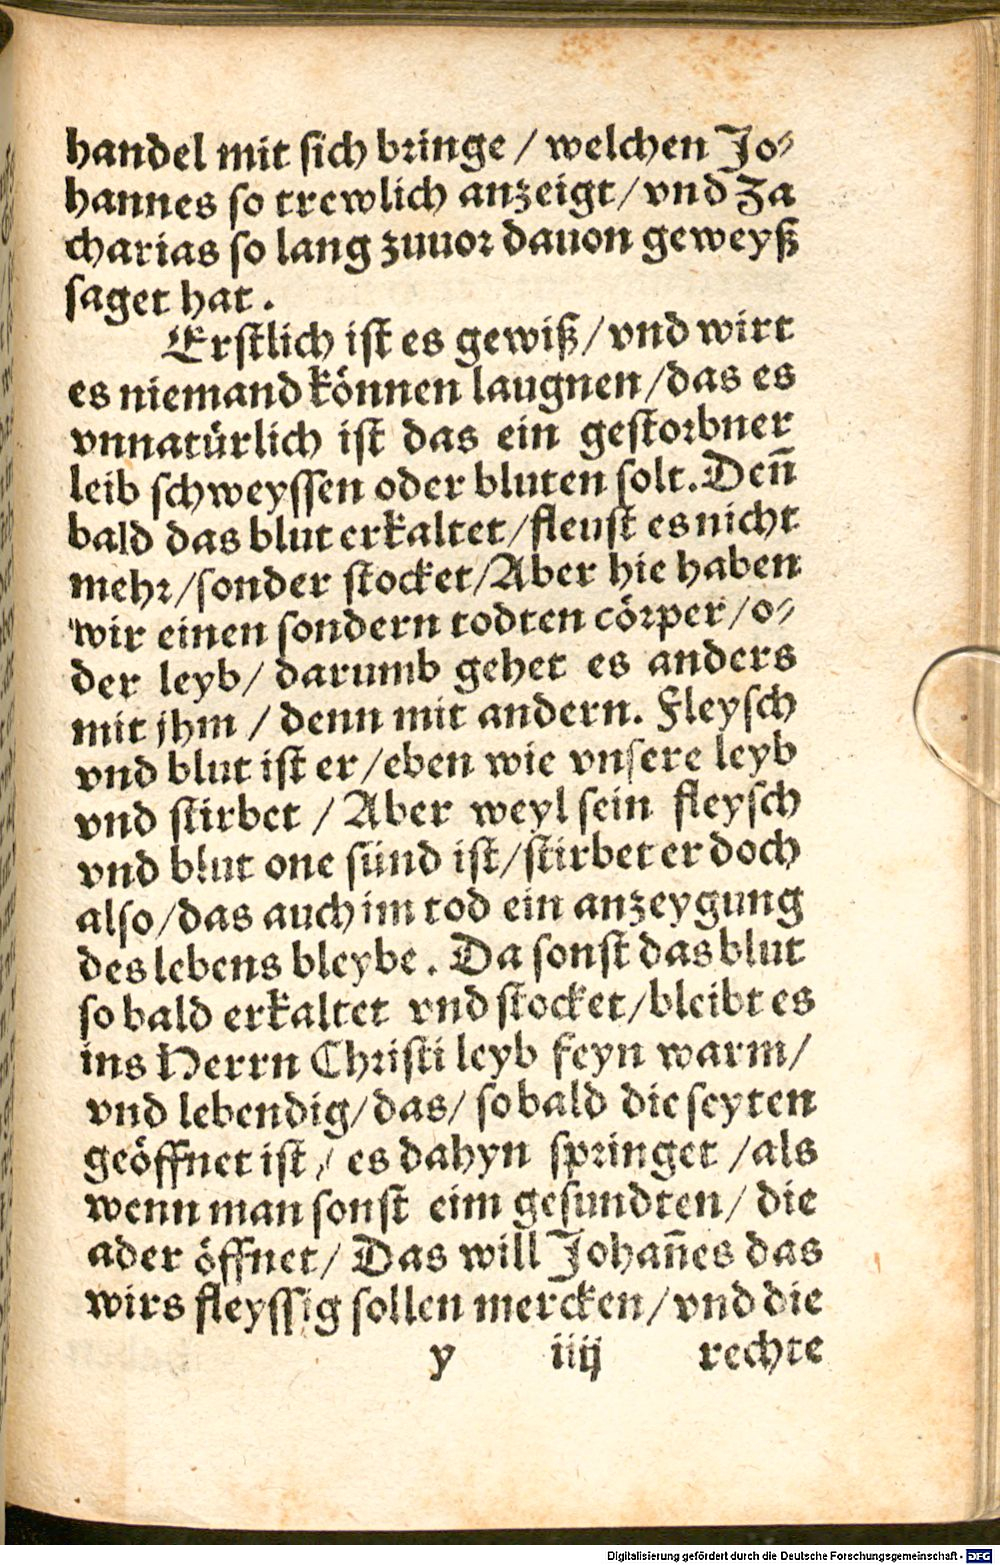 handel mit sich bringe / welchen Jo⸗
hannes so trewlich anzeigt / vnd Za
charias so lang zuuor dauon geweyß
saget hat.
Erstlich ist es gewiß / vnd wirt
es niemand können laugnen / das es
vnnatürlich ist das ein gestorbner
leib schweyssen oder bluten solt. Deñ
bald das blut erkaltet / fleust es nicht
mehr / sonder stocket / Aber hie haben
wir einen sondern todten cörper / o⸗
der leyb / darumb gehet es anders
mit jhm / denn mit andern. Fleysch
vnd blut ist er / eben wie vnsere leyb
vnd stirbet / Aber weyl sein fleysch
vnd blut one sünd ist / stirbet er doch
also / das auch im tod ein anzeygung
des lebens bleybe. Da sonst das blut
so bald erkaltet vnd stocket / bleibt es
ins Herrn Christi leyb feyn warm /
vnd lebendig / das / so bald die seyten
geöffnet ist / es dahyn springet / als
wenn man sonst eim gesundten / die
ader öffnet / Das will Johañes das
wirs fleyssig sollen mercken / vnd die
y iiij rechte
Digitalisierung gefördert durch die Deutsche Forschungsgemeinschaft - DFG